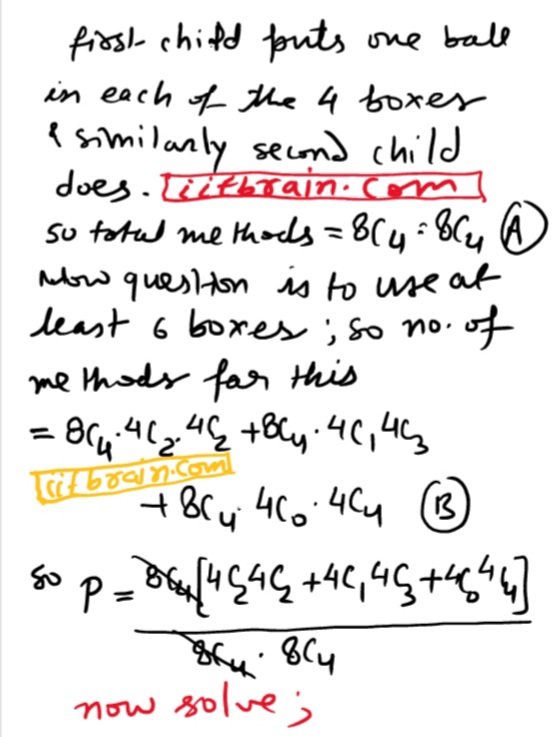 first child puts one ball
in each of the 4 boxes
& similarly second child
does. iitbrain.com
so total methods = 8C4 · 8C4 (A)
Now question is to use at
least 6 boxes ; so no. of
methods for this
= 8C4·4C2·4C2 + 8C4·4C1 4C3
iitbrain.com
+ 8C4· 4C0· 4C4 (B)
so P = 8C4[4C2 4C2 + 4C1 4C3 + 4C0 4C4]
8C4· 8C4
now solve;